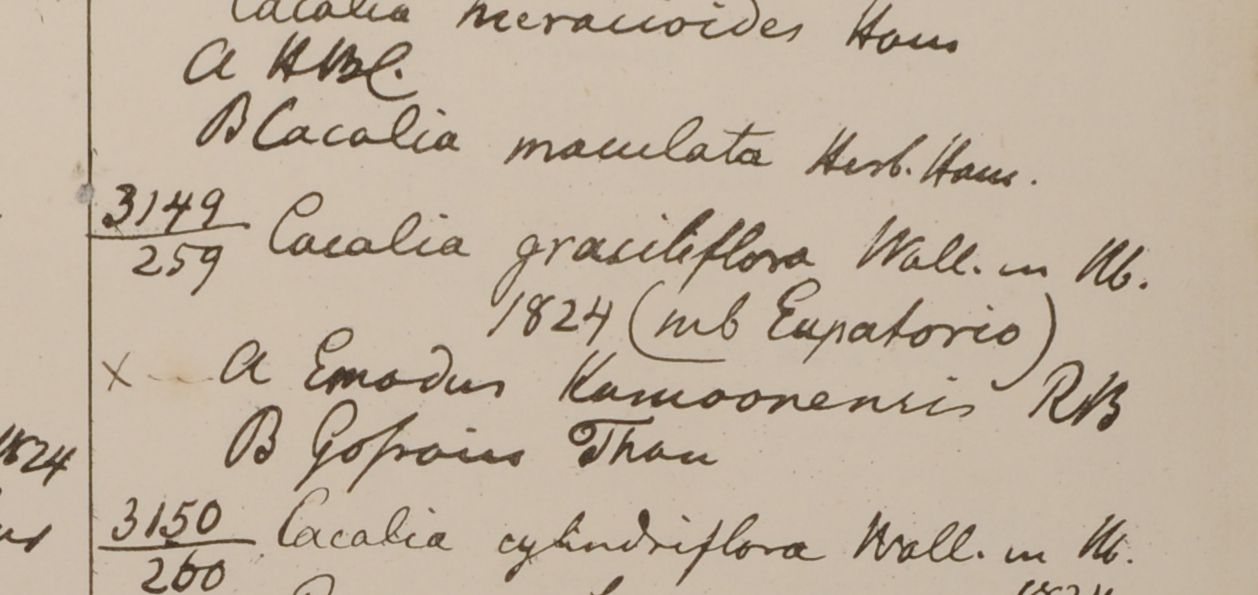 Cacalia hieracioides Ham
A HBC.
B Cacalia maculata Herb. Ham.
3149
259
Cacalia graciliflora Wall. in Hb.
1824 (sub Eupatorio)
x A Emodus Kamoonensis RB
B Gossain Than
3150
260
Cacalia cylindriflora Wall. in Hb.
1824